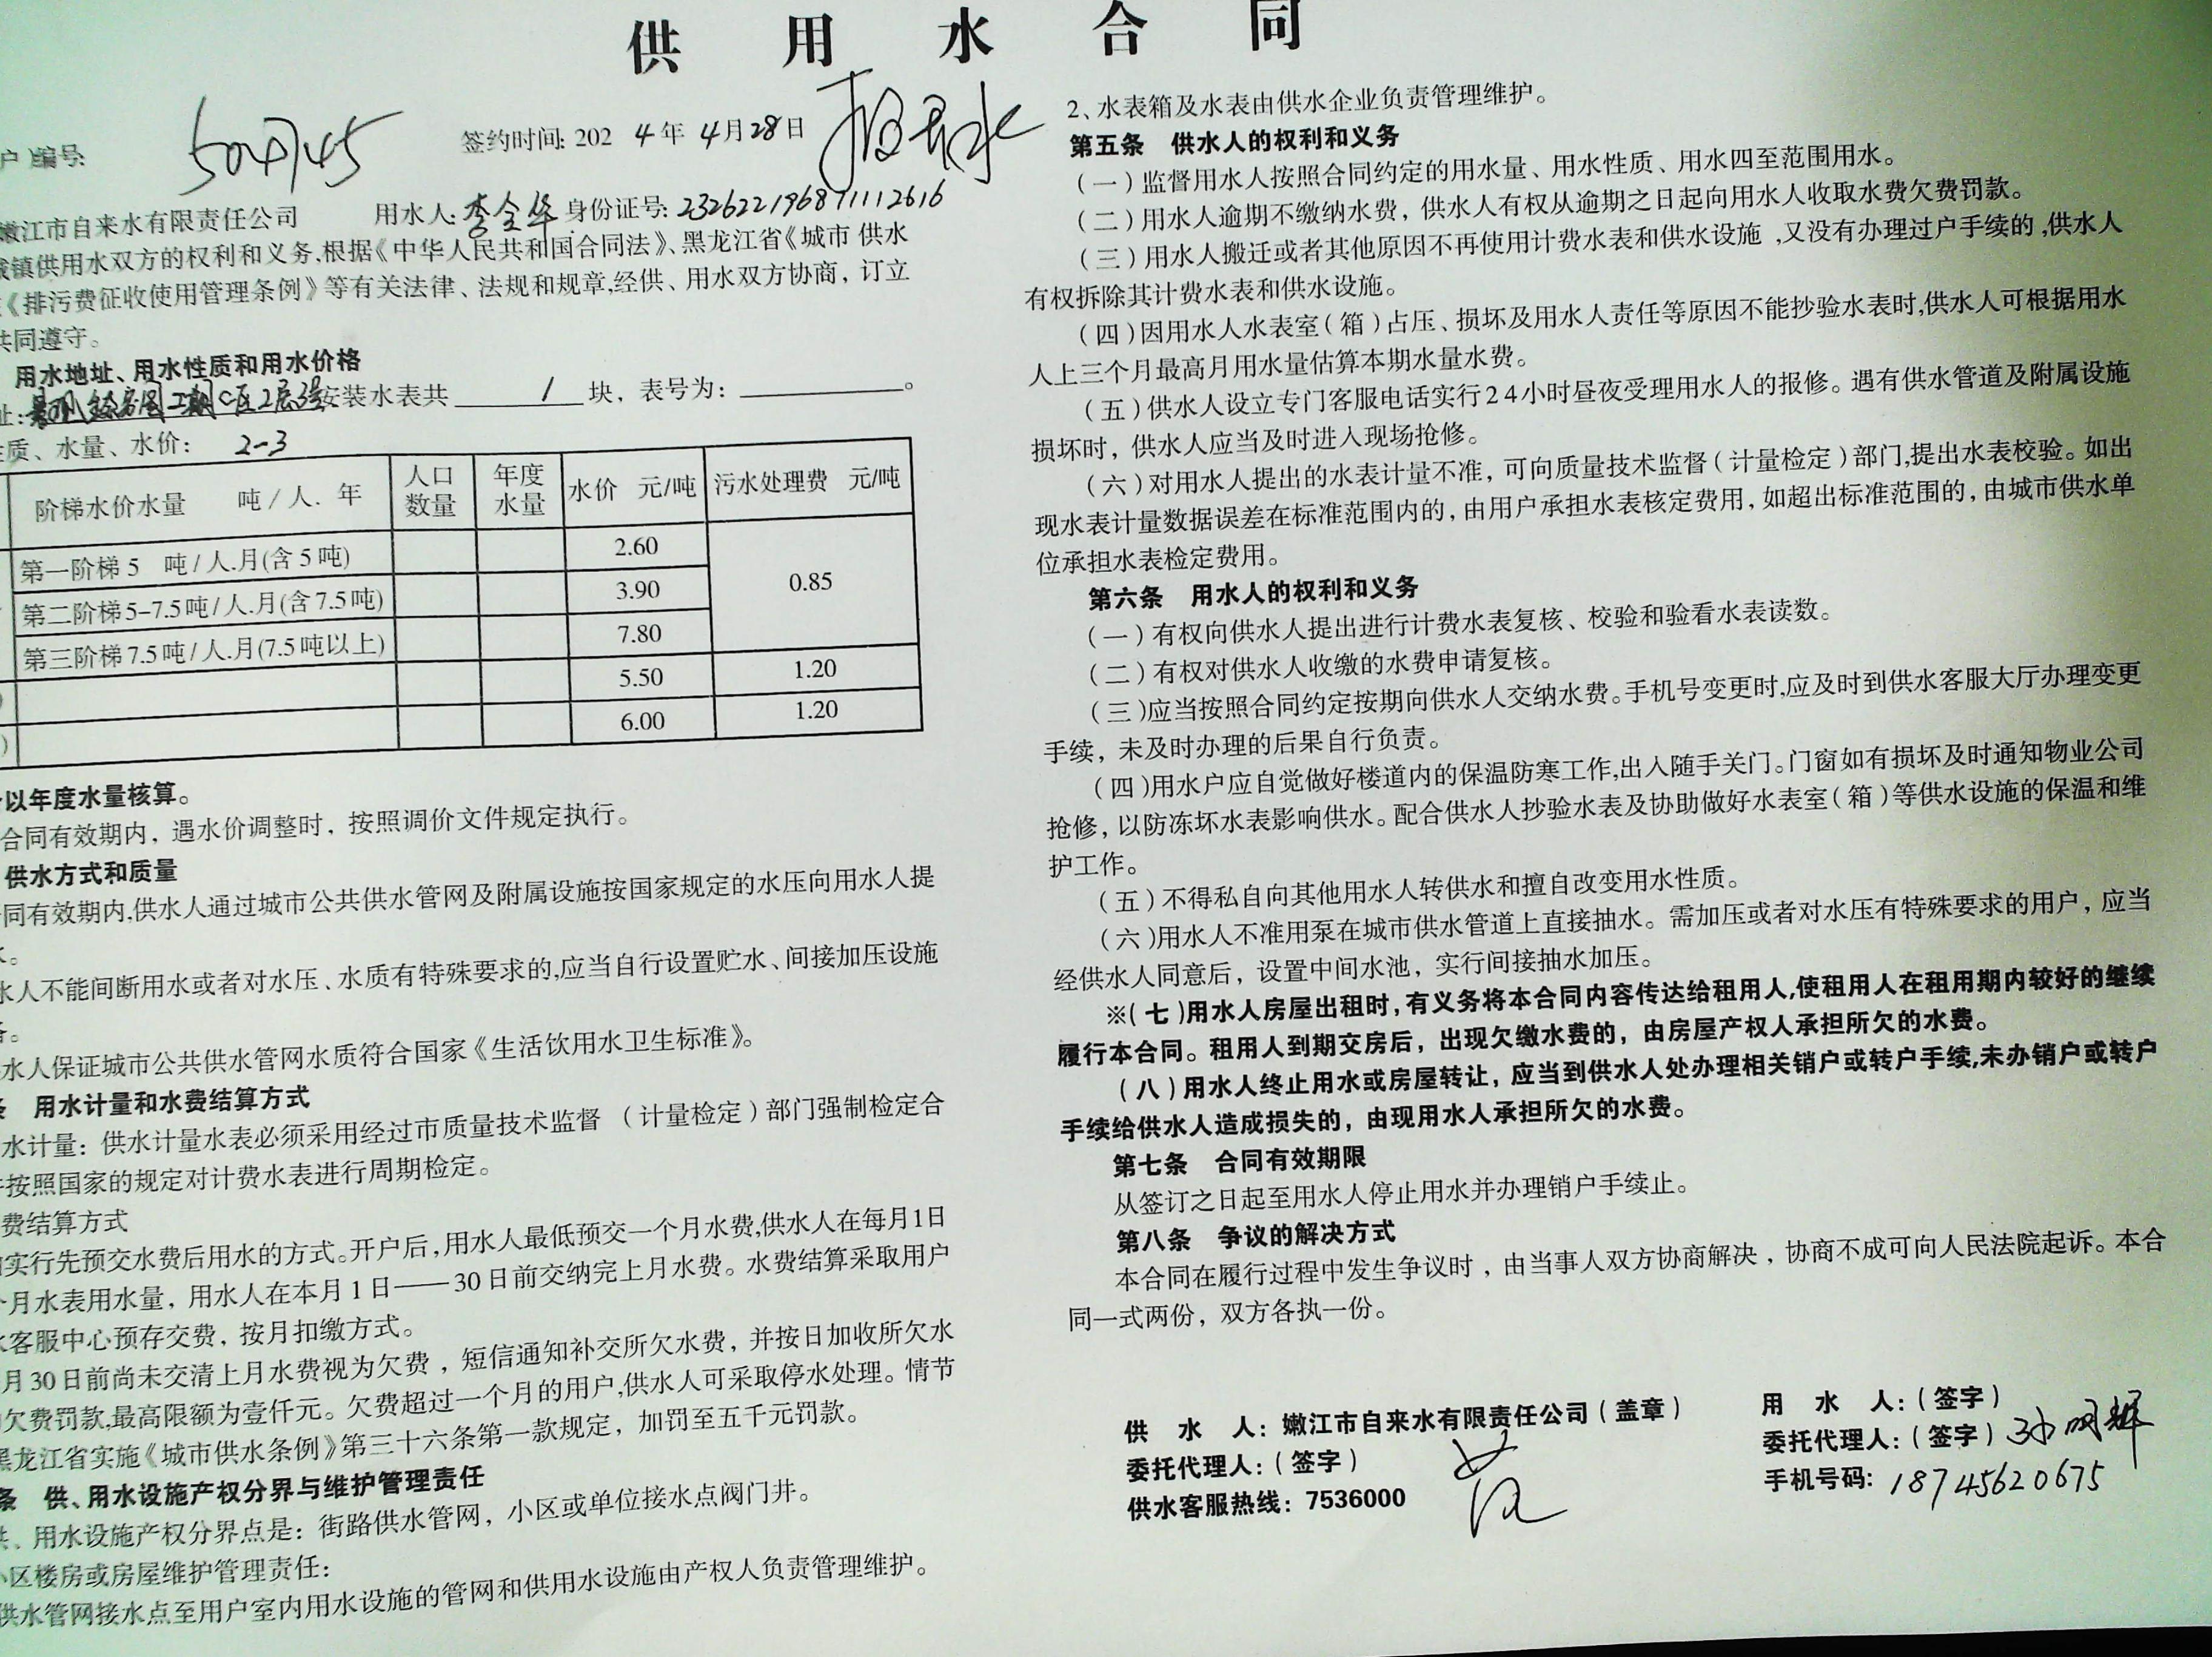 供 用 水 合 同
户）编号:
签约时间: 2024年4月28日
嫩江市自来水有限责任公司 用水人: 李全华 身份证号: 232622196811112616
城镇供用水双方的权利和义务,根据《中华人民共和国合同法》、黑龙江省《城市 供水
《排污费征收使用管理条例》等有关法律、法规和规章,经供、用水双方协商，订立
共同遵守。
用水地址、用水性质和用水价格
址: 二期C区2层3号 安装水表共 1 块，表号为: 。
性质、水量、水价: 2-3
阶梯水价水量 吨/人.年 人口数量 年度水量 水价 元/吨 污水处理费 元/吨
第一阶梯 5 吨/人.月(含5吨) 2.60 0.85
第二阶梯5-7.5吨/人.月(含7.5吨) 3.90
第三阶梯7.5吨/人.月(7.5吨以上) 7.80
5.50 1.20
6.00 1.20
以年度水量核算。
合同有效期内，遇水价调整时，按照调价文件规定执行。
供水方式和质量
同有效期内,供水人通过城市公共供水管网及附属设施按国家规定的水压向用水人提
水。
水人不能间断用水或者对水压、水质有特殊要求的,应当自行设置贮水、间接加压设施
备。
水人保证城市公共供水管网水质符合国家《生活饮用水卫生标准》。
条 用水计量和水费结算方式
水计量：供水计量水表必须采用经过市质量技术监督 （计量检定）部门强制检定合
按照国家的规定对计费水表进行周期检定。
费结算方式
实行先预交水费后用水的方式。开户后,用水人最低预交一个月水费,供水人在每月1日
个月水表用水量，用水人在本月1日——30日前交纳完上月水费。水费结算采取用户
水客服中心预存交费，按月扣缴方式。
月30日前尚未交清上月水费视为欠费，短信通知补交所欠水费，并按日加收所欠水
欠费罚款,最高限额为壹仟元。欠费超过一个月的用户,供水人可采取停水处理。情节
黑龙江省实施《城市供水条例》第三十六条第一款规定，加罚至五千元罚款。
条 供、用水设施产权分界与维护管理责任
供、用水设施产权分界点是：街路供水管网，小区或单位接水点阀门井。
小区楼房或房屋维护管理责任:
供水管网接水点至用户室内用水设施的管网和供用水设施由产权人负责管理维护。
2、水表箱及水表由供水企业负责管理维护。
第五条 供水人的权利和义务
（一）监督用水人按照合同约定的用水量、用水性质、用水四至范围用水。
（二）用水人逾期不缴纳水费，供水人有权从逾期之日起向用水人收取水费欠费罚款。
（三）用水人搬迁或者其他原因不再使用计费水表和供水设施 ,又没有办理过户手续的 ,供水人
有权拆除其计费水表和供水设施。
（四）因用水人水表室（箱）占压、损坏及用水人责任等原因不能抄验水表时,供水人可根据用水
人上三个月最高月用水量估算本期水量水费。
（五）供水人设立专门客服电话实行24小时昼夜受理用水人的报修。遇有供水管道及附属设施
损坏时，供水人应当及时进入现场抢修。
（六）对用水人提出的水表计量不准，可向质量技术监督（计量检定）部门,提出水表校验。如出
现水表计量数据误差在标准范围内的，由用户承担水表核定费用，如超出标准范围的，由城市供水单
位承担水表检定费用。
第六条 用水人的权利和义务
（一）有权向供水人提出进行计费水表复核、校验和验看水表读数。
（二）有权对供水人收缴的水费申请复核。
（三）应当按照合同约定按期向供水人交纳水费。手机号变更时,应及时到供水客服大厅办理变更
手续，未及时办理的后果自行负责。
（四）用水户应自觉做好楼道内的保温防寒工作,出入随手关门。门窗如有损坏及时通知物业公司
抢修，以防冻坏水表影响供水。配合供水人抄验水表及协助做好水表室（箱）等供水设施的保温和维
护工作。
（五）不得私自向其他用水人转供水和擅自改变用水性质。
（六）用水人不准用泵在城市供水管道上直接抽水。需加压或者对水压有特殊要求的用户，应当
经供水人同意后，设置中间水池，实行间接抽水加压。
※（七）用水人房屋出租时,有义务将本合同内容传达给租用人,使租用人在租用期内较好的继续
履行本合同。租用人到期交房后，出现欠缴水费的，由房屋产权人承担所欠的水费。
（八）用水人终止用水或房屋转让，应当到供水人处办理相关销户或转户手续,未办销户或转户
手续给供水人造成损失的，由现用水人承担所欠的水费。
第七条 合同有效期限
从签订之日起至用水人停止用水并办理销户手续止。
第八条 争议的解决方式
本合同在履行过程中发生争议时，由当事人双方协商解决，协商不成可向人民法院起诉。本合
同一式两份，双方各执一份。
供 水 人：嫩江市自来水有限责任公司（盖章）
委托代理人：（签字）
供水客服热线：7536000
用 水 人：（签字）
委托代理人：（签字）
手机号码: 18745620675